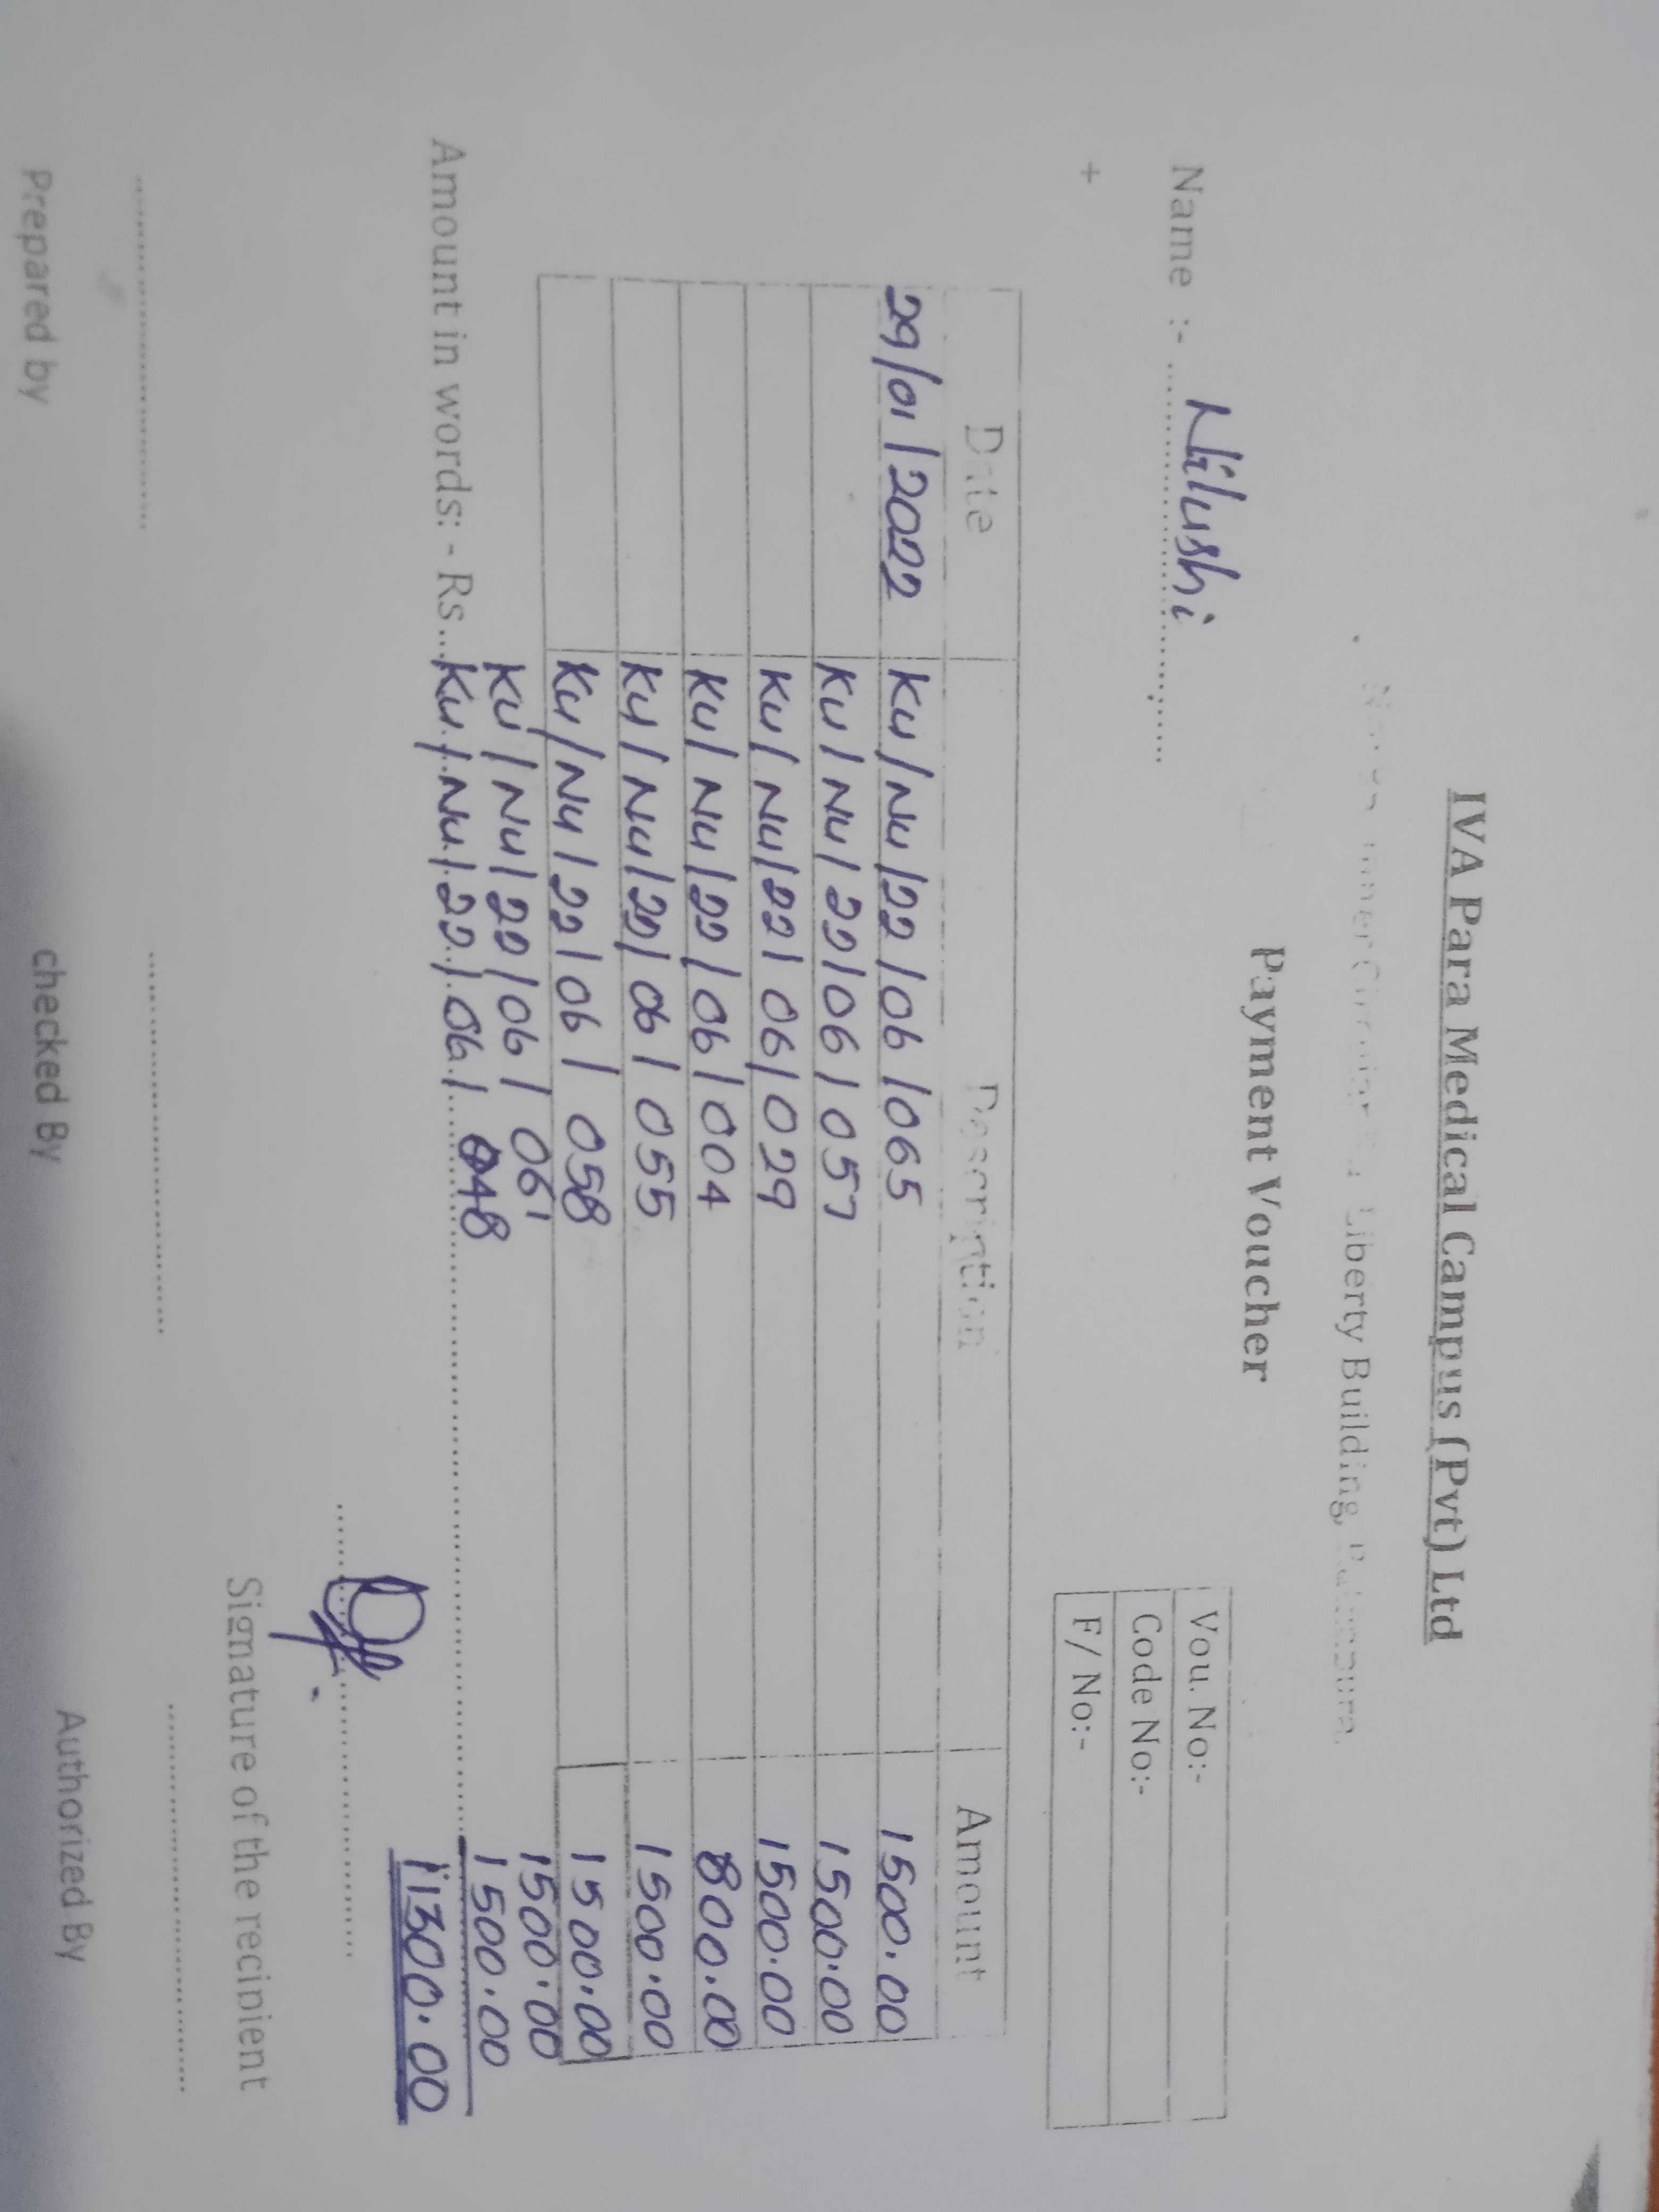 IVA Para Medical Campus (Pvt) Ltd
Liberty Building,
Payment Voucher
Vou. No:-
Code No:-
F/ No:-
Name :- Nilushi
+
Date Description Amount
29/01/2022 KU/NU/22/06/065 1500.00
KU/NU/22/06/057 1500.00
KU/NU/22/06/029 1500.00
KU/NU/22/06/004 800.00
KU/NU/22/06/055 1500.00
KU/NU/22/06/058 1500.00
KU/NU/22/06/061 1500.00
Amount in words: - Rs... KU/NU/22/06/048 1500.00
11300.00
Signature of the recipient
Prepared by checked By Authorized By